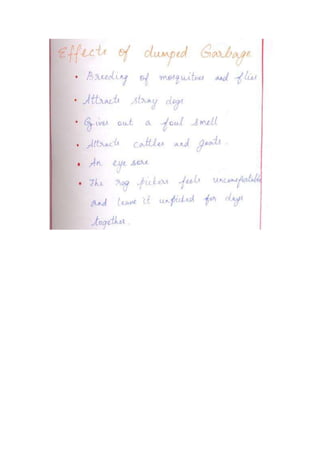 Effects of dumped Garbage
• Breeding of mosquitoes and flies
• Attracts stray dogs
• Gives out a foul smell
• Attracts cattles and goats.
• An eye sore
• The rag pickers feels uncomfortable
and leave it unpicked for days
together.